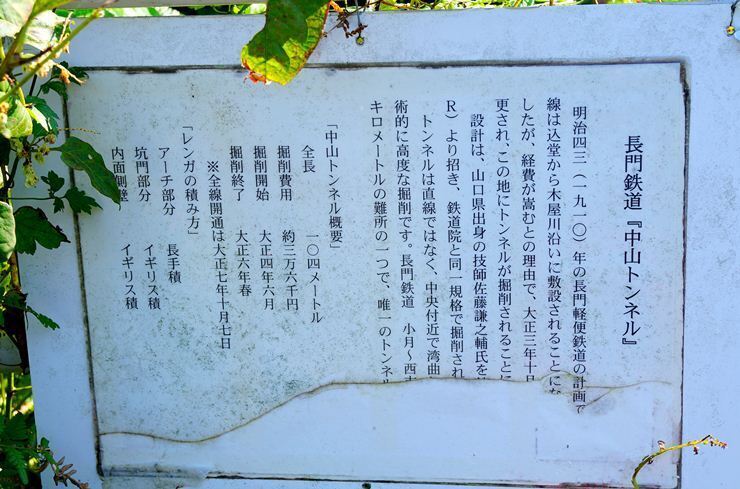 長門鉄道『中山トンネル』
明治四三(一九一〇)年の長門軽便鉄道の計画で
線は込堂から木屋川沿いに敷設されることにな
したが、経費が嵩むとの理由で、大正三年十月
更され、この地にトンネルが掘削されることに
設計は、山口県出身の技師佐藤謙之輔氏を
R)より招き、鉄道院と同一規格で掘削され
トンネルは直線ではなく、中央付近で湾曲
術的に高度な掘削です。長門鉄道 小月〜西市
キロメートルの難所の一つで、唯一のトンネル
「中山トンネル概要」
全長 一〇四メートル
掘削費用 約三万六千円
掘削開始 大正四年六月
掘削終了 大正六年春
※全線開通は大正七年十月七日
「レンガの積み方」
アーチ部分 長手積
坑門部分 イギリス積
内面側壁 イギリス積